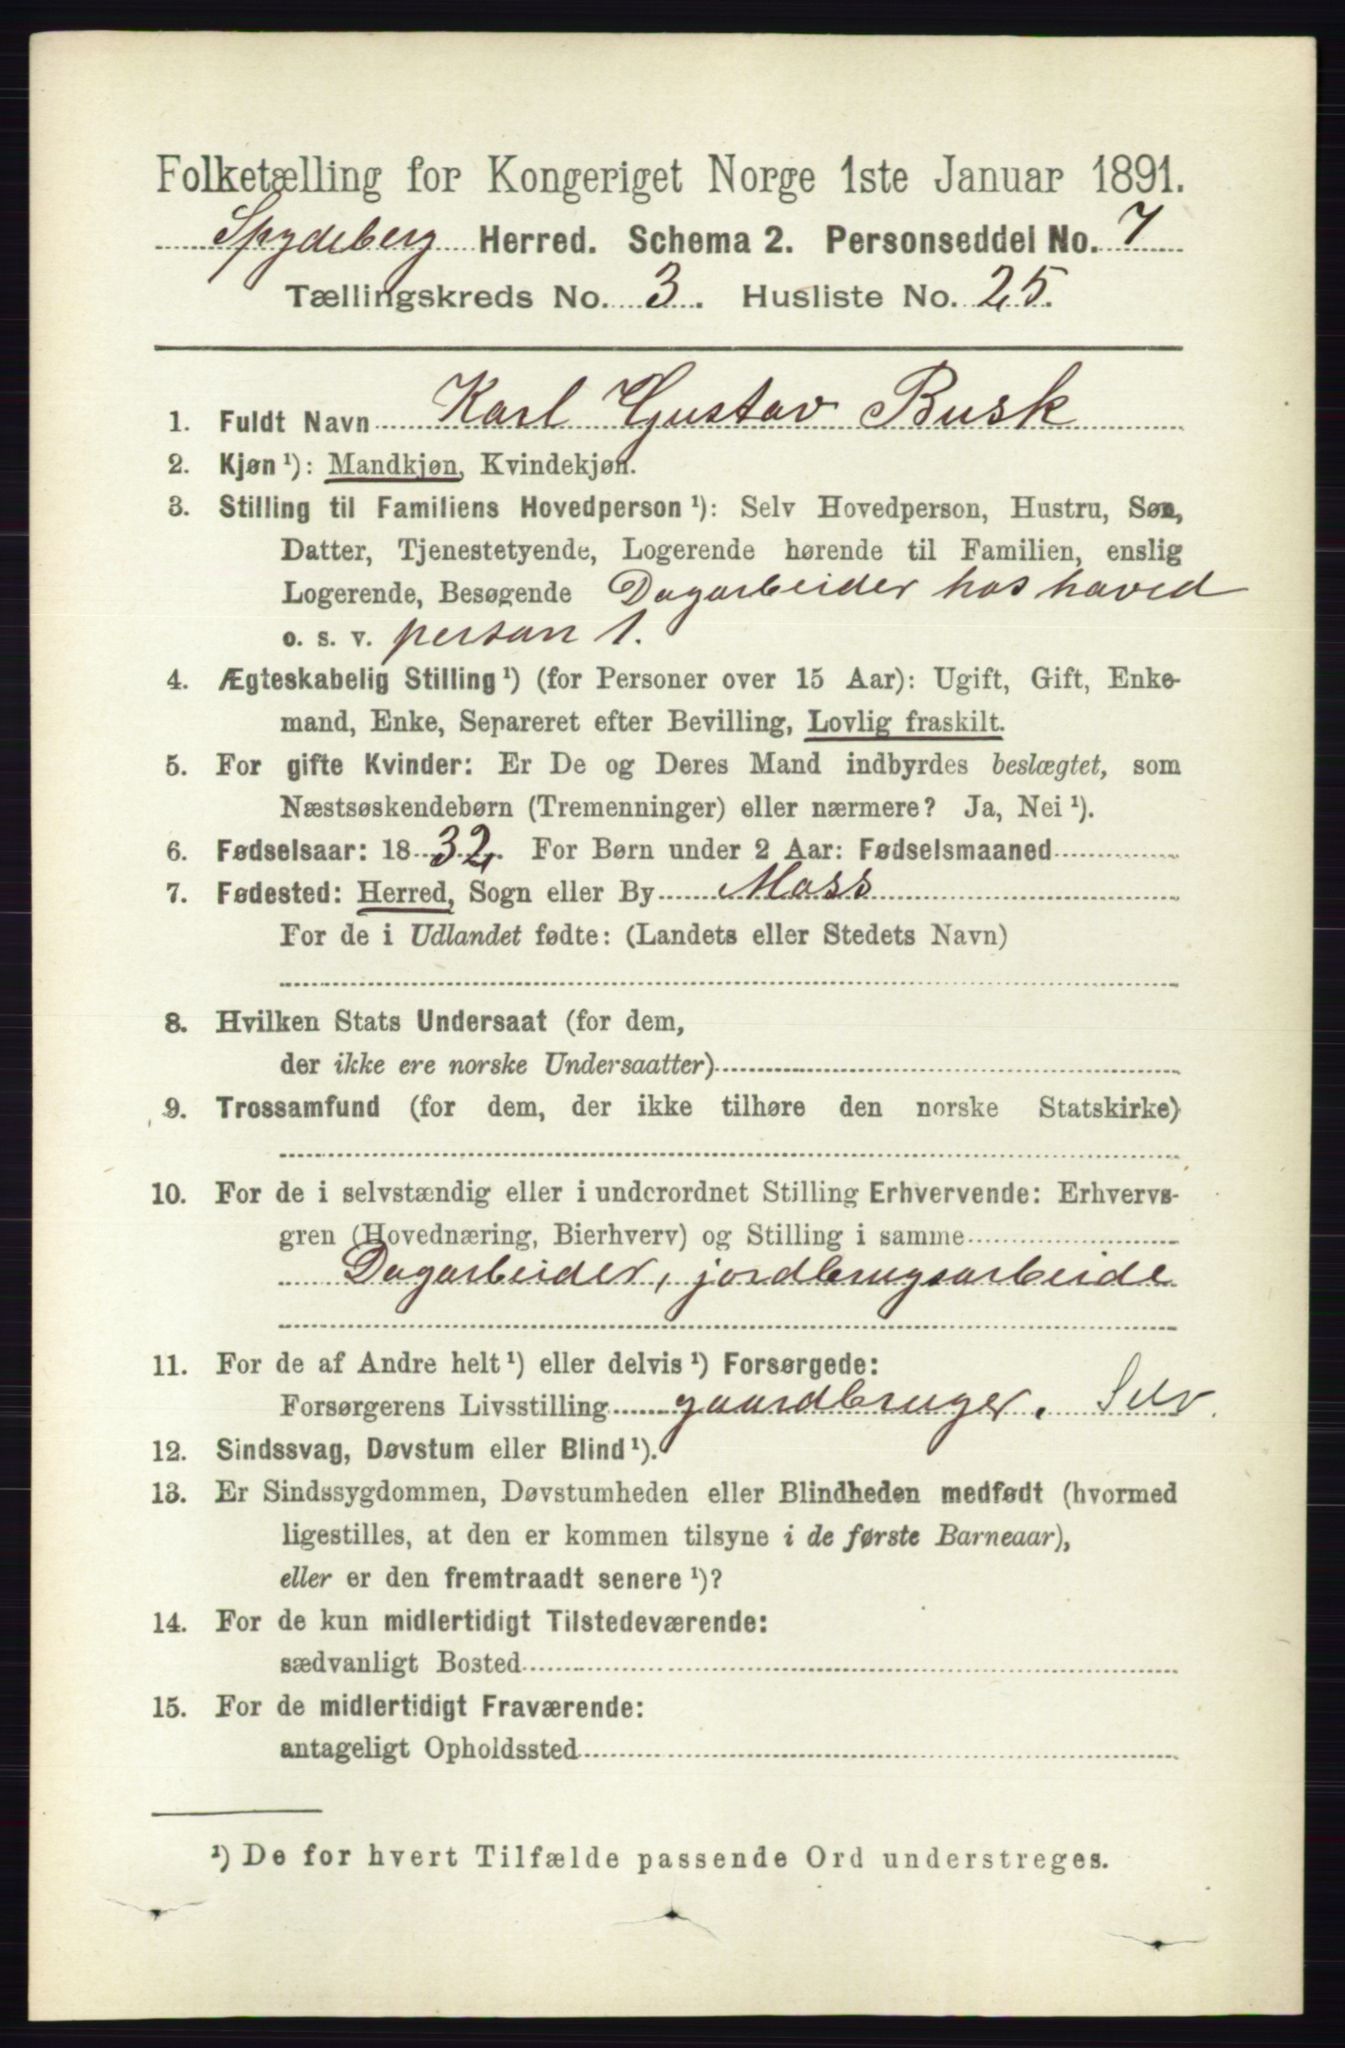 Folketælling for Kongeriget Norge 1ste Januar 1891.
Spydeberg Herred. Schema 2. Personseddel No. 7
Tællingskreds No. 3. Husliste No. 25.
1. Fuldt Navn Karl Gustav Busk
2. Kjøn ¹): Mandkjøn, Kvindekjøn.
3. Stilling til Familiens Hovedperson ¹): Selv Hovedperson, Hustru, Søn,
Datter, Tjenestetyende, Logerende hørende til Familien, enslig
Logerende, Besøgende Dagarbeider hos hoved
o. s. v. person 1.
4. Ægteskabelig Stilling ¹) (for Personer over 15 Aar): Ugift, Gift, Enke-
mand, Enke, Separeret efter Bevilling, Lovlig fraskilt.
5. For gifte Kvinder: Er De og Deres Mand indbyrdes beslægtet, som
Næstsøskendebørn (Tremenninger) eller nærmere? Ja, Nei ¹).
6. Fødselsaar: 18 32. For Børn under 2 Aar: Fødselsmaaned
7. Fødested: Herred, Sogn eller By Moss
For de i Udlandet fødte: (Landets eller Stedets Navn)
8. Hvilken Stats Undersaat (for dem,
der ikke ere norske Undersaatter)
9. Trossamfund (for dem, der ikke tilhøre den norske Statskirke)
10. For de i selvstændig eller i underordnet Stilling Erhvervende: Erhvervs-
gren (Hovednæring, Bierhverv) og Stilling i samme
Dagarbeider, jordbrugsarbeide
11. For de af Andre helt ¹) eller delvis ¹) Forsørgede:
Forsørgerens Livsstilling gaardbruger. Selv.
12. Sindssvag, Døvstum eller Blind ¹).
13. Er Sindssygdommen, Døvstumheden eller Blindheden medfødt (hvormed
ligestilles, at den er kommen tilsyne i de første Barneaar),
eller er den fremtraadt senere ¹)?
14. For de kun midlertidigt Tilstedeværende:
sædvanligt Bosted
15. For de midlertidigt Fraværende:
antageligt Opholdssted
¹) De for hvert Tilfælde passende Ord understreges.